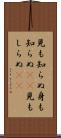 見も知らぬ身も
知らぬ見も
しらぬ